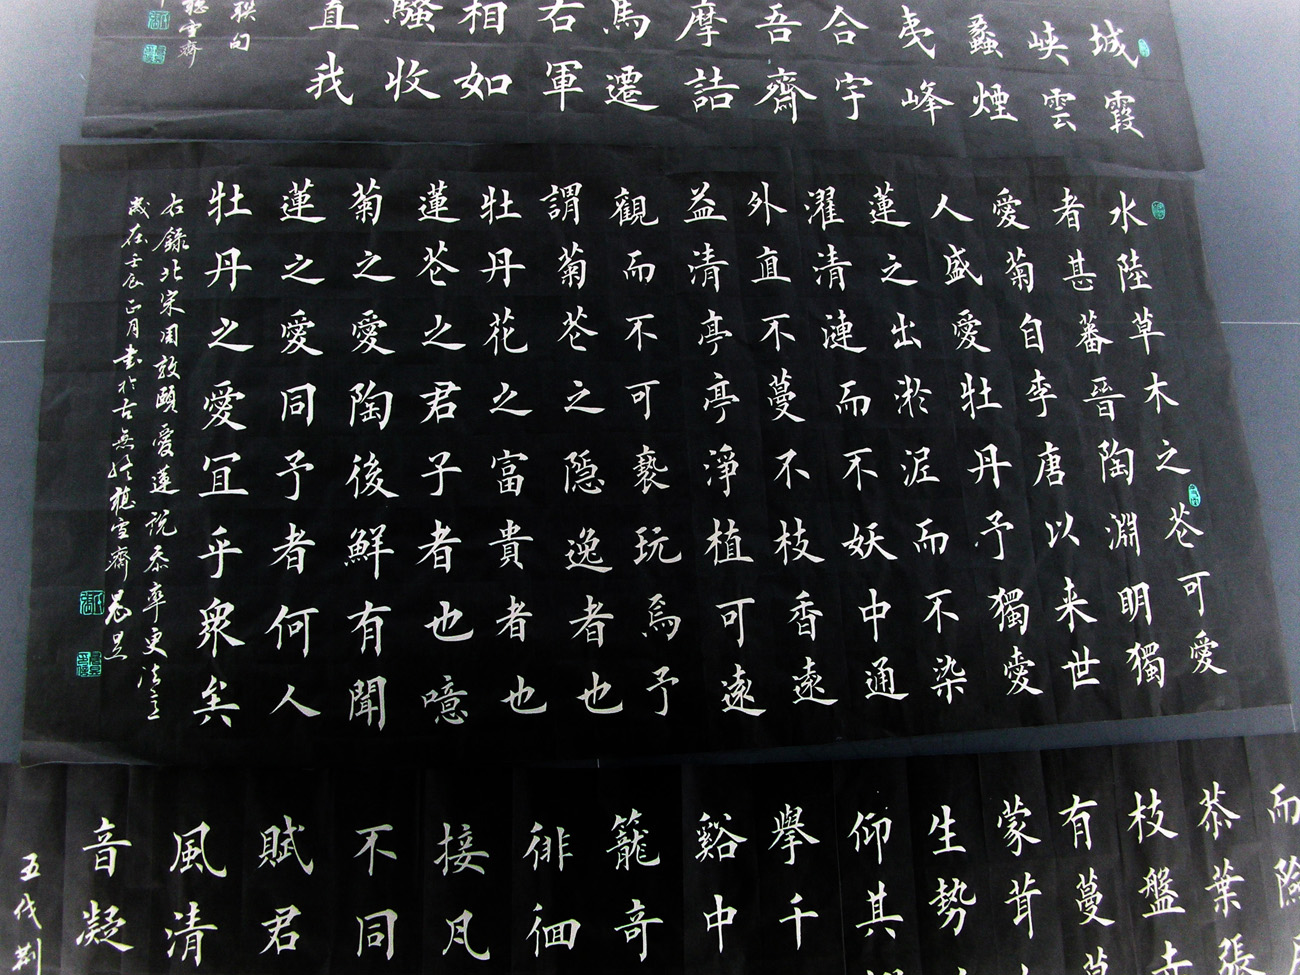 城霞
峡雲
蠡煙
夷峰
合宇
吾齋
摩詰
馬遷
右軍
相如
騷收
直我
聯句
聽雪齋
水陸草木之花可愛
者甚蕃晉陶淵明獨
愛菊自李唐以来世
人盛愛牡丹予獨愛
蓮之出淤泥而不染
濯清漣而不妖中通
外直不蔓不枝香遠
益清亭亭淨植可遠
觀而不可褻玩焉予
謂菊花之隠逸者也
牡丹花之富貴者也
蓮花之君子者也噫
菊之愛陶後鮮有聞
蓮之愛同予者何人
牡丹之愛宜乎衆矣
右錄北宋周敦頤愛蓮說忝率更法意
歲在壬辰正月書於古無終聽雪齋
而險
恭葉張
枝盤
有蔓
蒙茸
生勢
仰其
舉千
谿中
籠奇
徘徊
接凡
不同
賦君
風清
音凝
五代荆